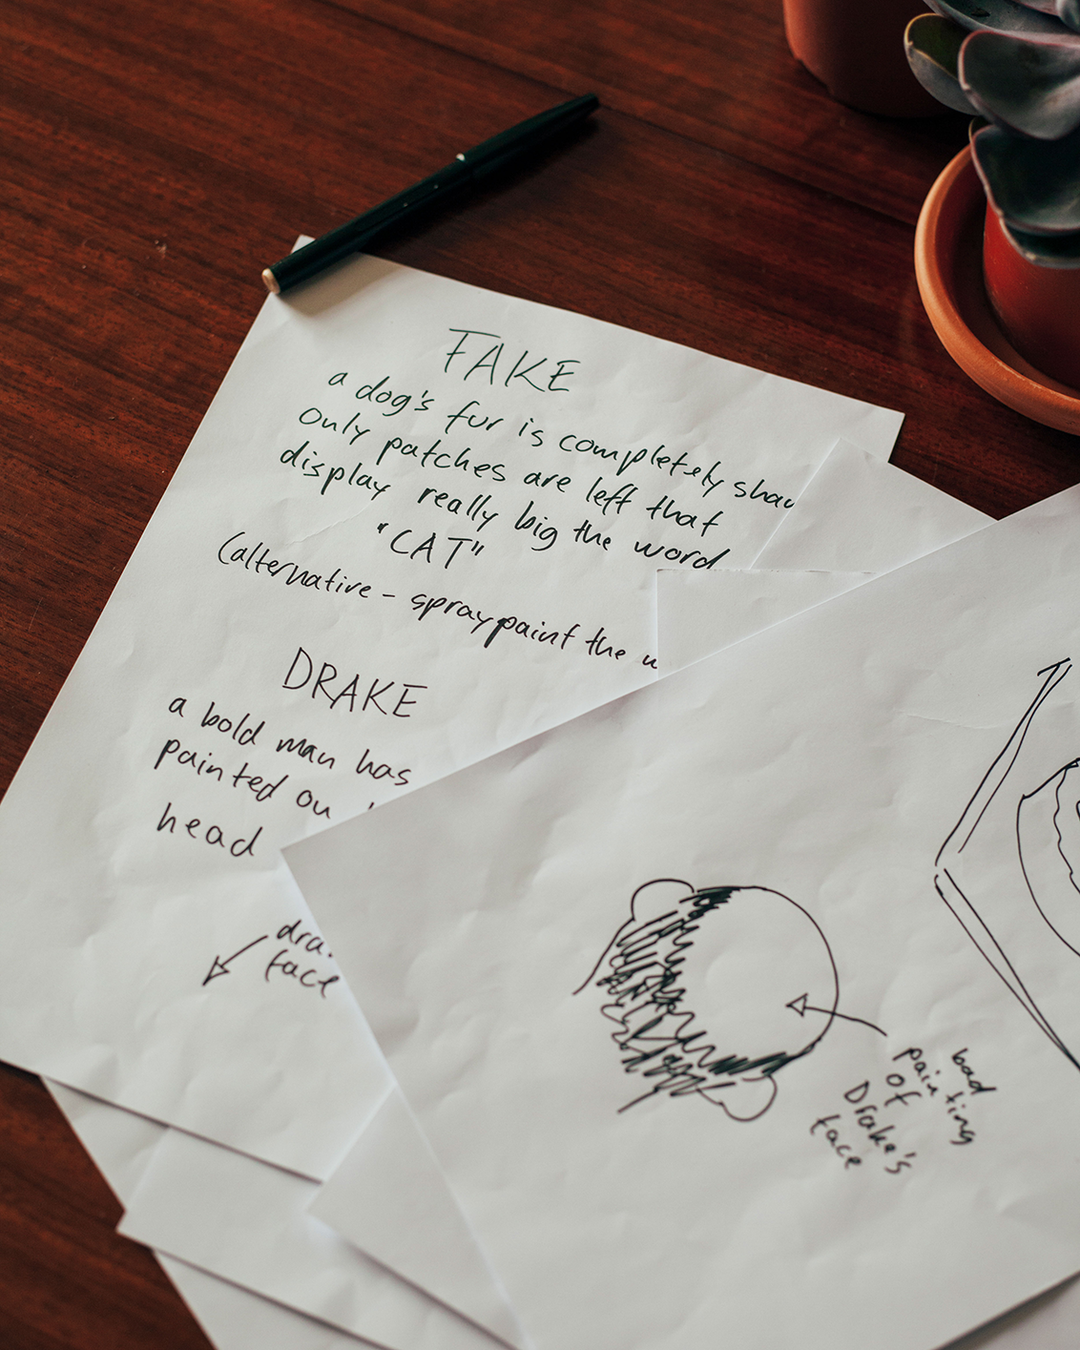 FAKE
a dog's fur is completely
only patches are left that
display really big the word
"CAT"
(alternative - spraypaint the
DRAKE
a bold man has
painted on
head
face
bad
painting
of
Drake's
face